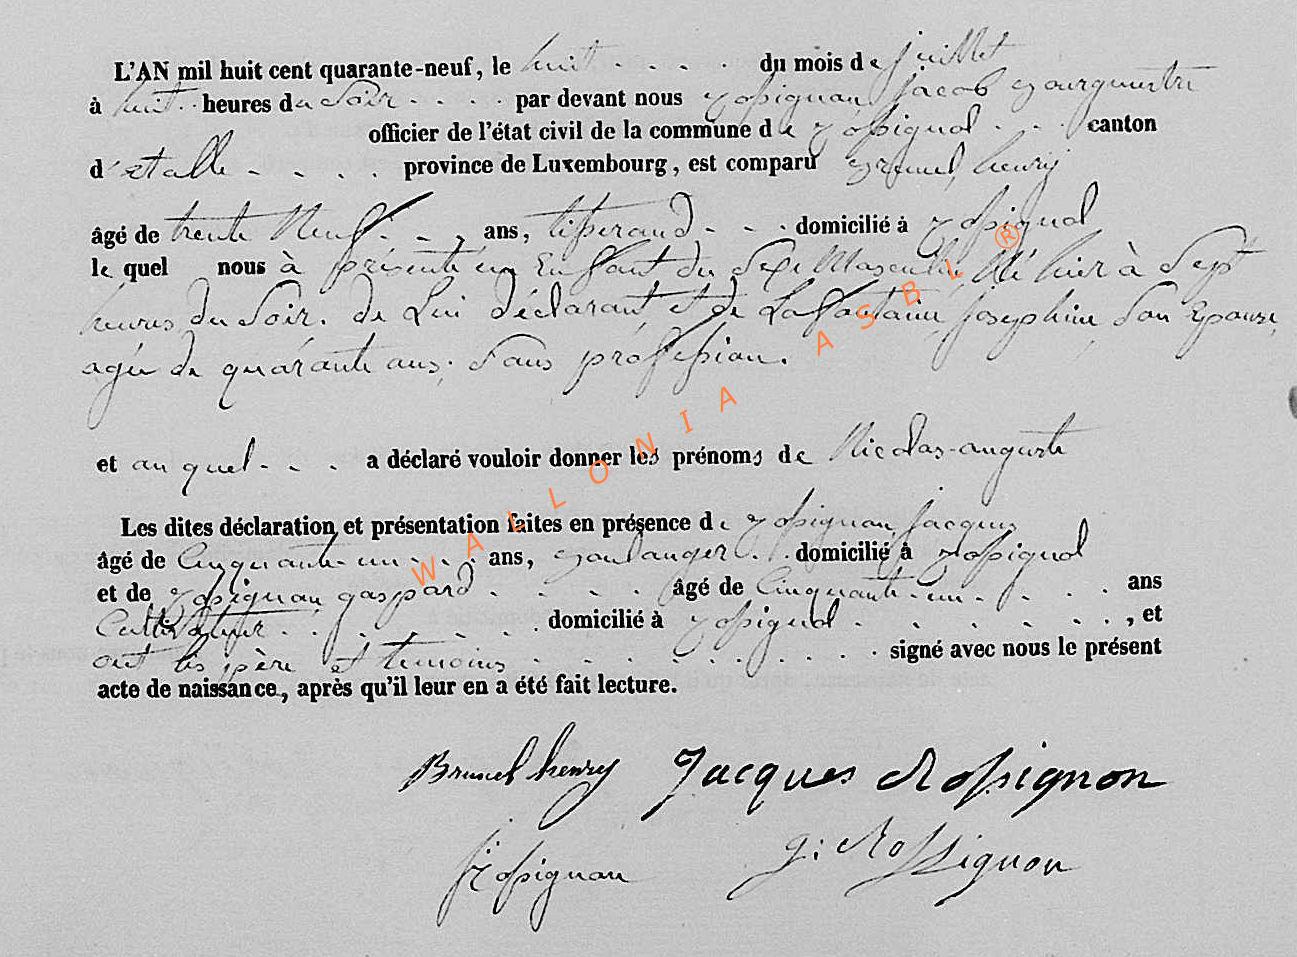 L'AN mil huit cent quarante-neuf, le huit . . . . du mois de juillet
à huit . heures du soir . . . . par devant nous Rossignon jacob Bourgmestre
officier de l'état civil de la commune de Rossignol . . . canton
d'Etalle . . . . province de Luxembourg, est comparu Brunel, henry
âgé de trente Neuf . . . , ans, tisserand . . . domicilié à Rossignol
le quel nous à présenté un Enfant du Sexe Masculin, Né hier à Sept
heures du Soir. de Lui déclarant et de Lafontaine josephine Son Epouse,
agée de quarante ans, Sans profession.
et auquel . . . a déclaré vouloir donner les prénoms de Nicolas-auguste
Les dites déclaration et présentation faites en présence de Rossignon jacques
âgé de Cinquante-un . . . ans, Boulanger . . domicilié à Rossignol
et de Rossignon gaspard . . . . . âgé de Cinquante-un . . . . ans
Cultivateur . . . . . . . domicilié à Rossignol . . . . . . . , et
ont les père et temoins . . . . . . . . . signé avec nous le présent
acte de naissance, après qu'il leur en a été fait lecture.
Brunel henry Jacques Rossignon
jRossignon g: Rossignon
WALLONIA ASBL ®